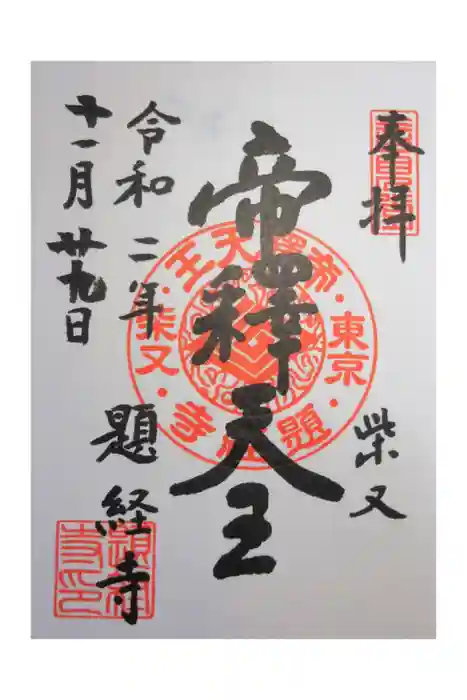 奉拝
柴又
帝釋天王
令和二年
十一月廿九日
題経寺
帝釋天王
東京
柴又
題経寺